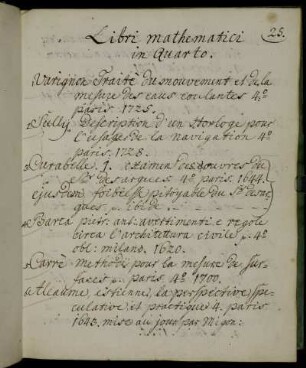 25.
Libri mathematici
in Quarto.
Varignon Traité du mouvement et de la
mesure des eaux coulantes 4.º
paris 1725.
Sully Description d'un Horloge pour
l'usage de la navigation 4.º
paris. 1728.
Curabelle J. examen des œuvres de
Desargues 4.º paris. 1644.
ejusdem foiblesse pitoyable du Sr. Desar
gues
Barca pietr. ant. avertimenti e regole
circa l'architettura civile p. 4.º
obl: milano. 1620.
Carré Methode pour la mesure de sur-
faces .. paris. 4.º 1700.
Alleaume, estienne, la perspective spe-
culative, et practique 4. paris
1643. mise au jour par Migon: